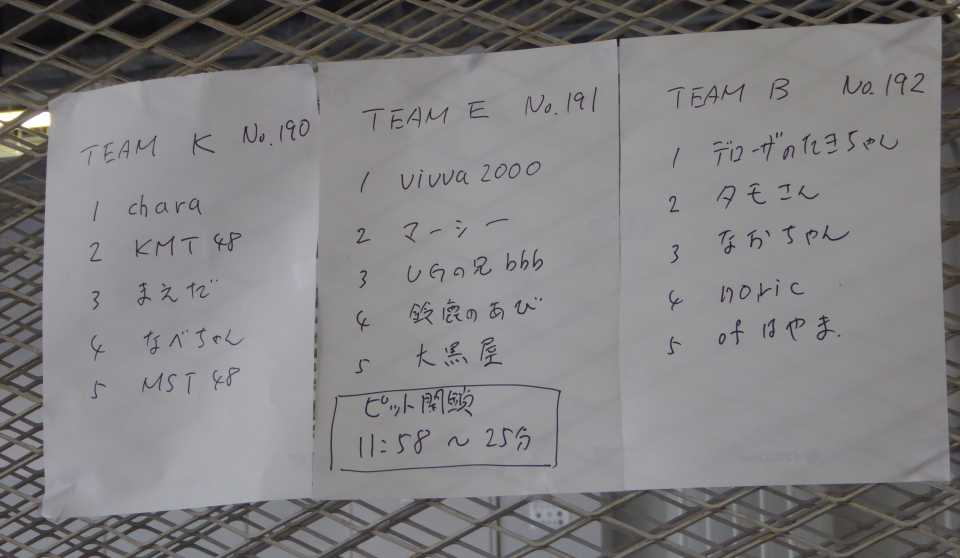 TEAM K No.190
1 chara
2 KMT 48
3 まえだ
4 なべちゃん
5 MST 48
TEAM E No.191
1 vivva 2000
2 マーシー
3 UGの兄bbb
4 鈴鹿のあび
5 大黒屋
ピット開頭
11:58 ~ 25分
TEAM B No.192
1 デローザのたきちゃん
2 タモさん
3 なかちゃん
4 noric
5 of はやま.